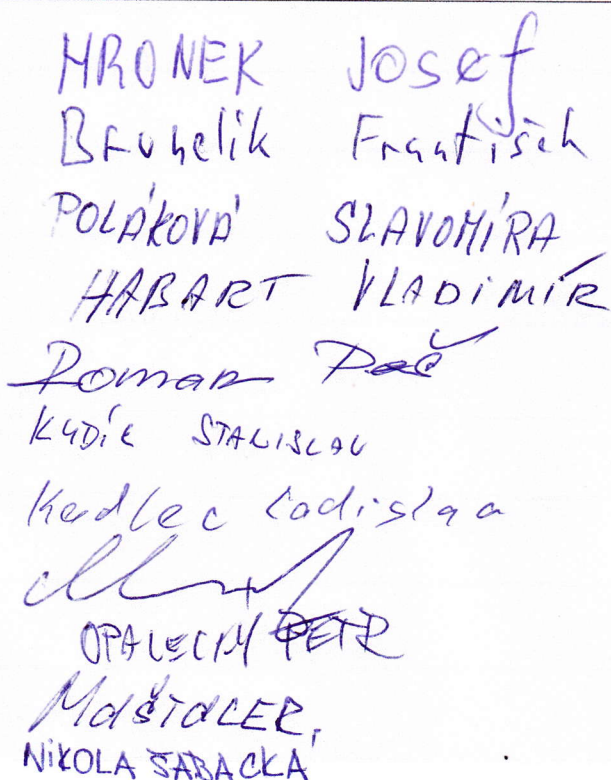 HRONEK JOSEF
Bruhelik František
POLÁKOVÁ SLAVOMÍRA
HABART VLADIMÍR
Roman
KUDÍK STANISLAV
Kadlec Ladislav
OPALECKÝ PETR
MAŠTALÍŘ,
NIKOLA ŠABACKÁ